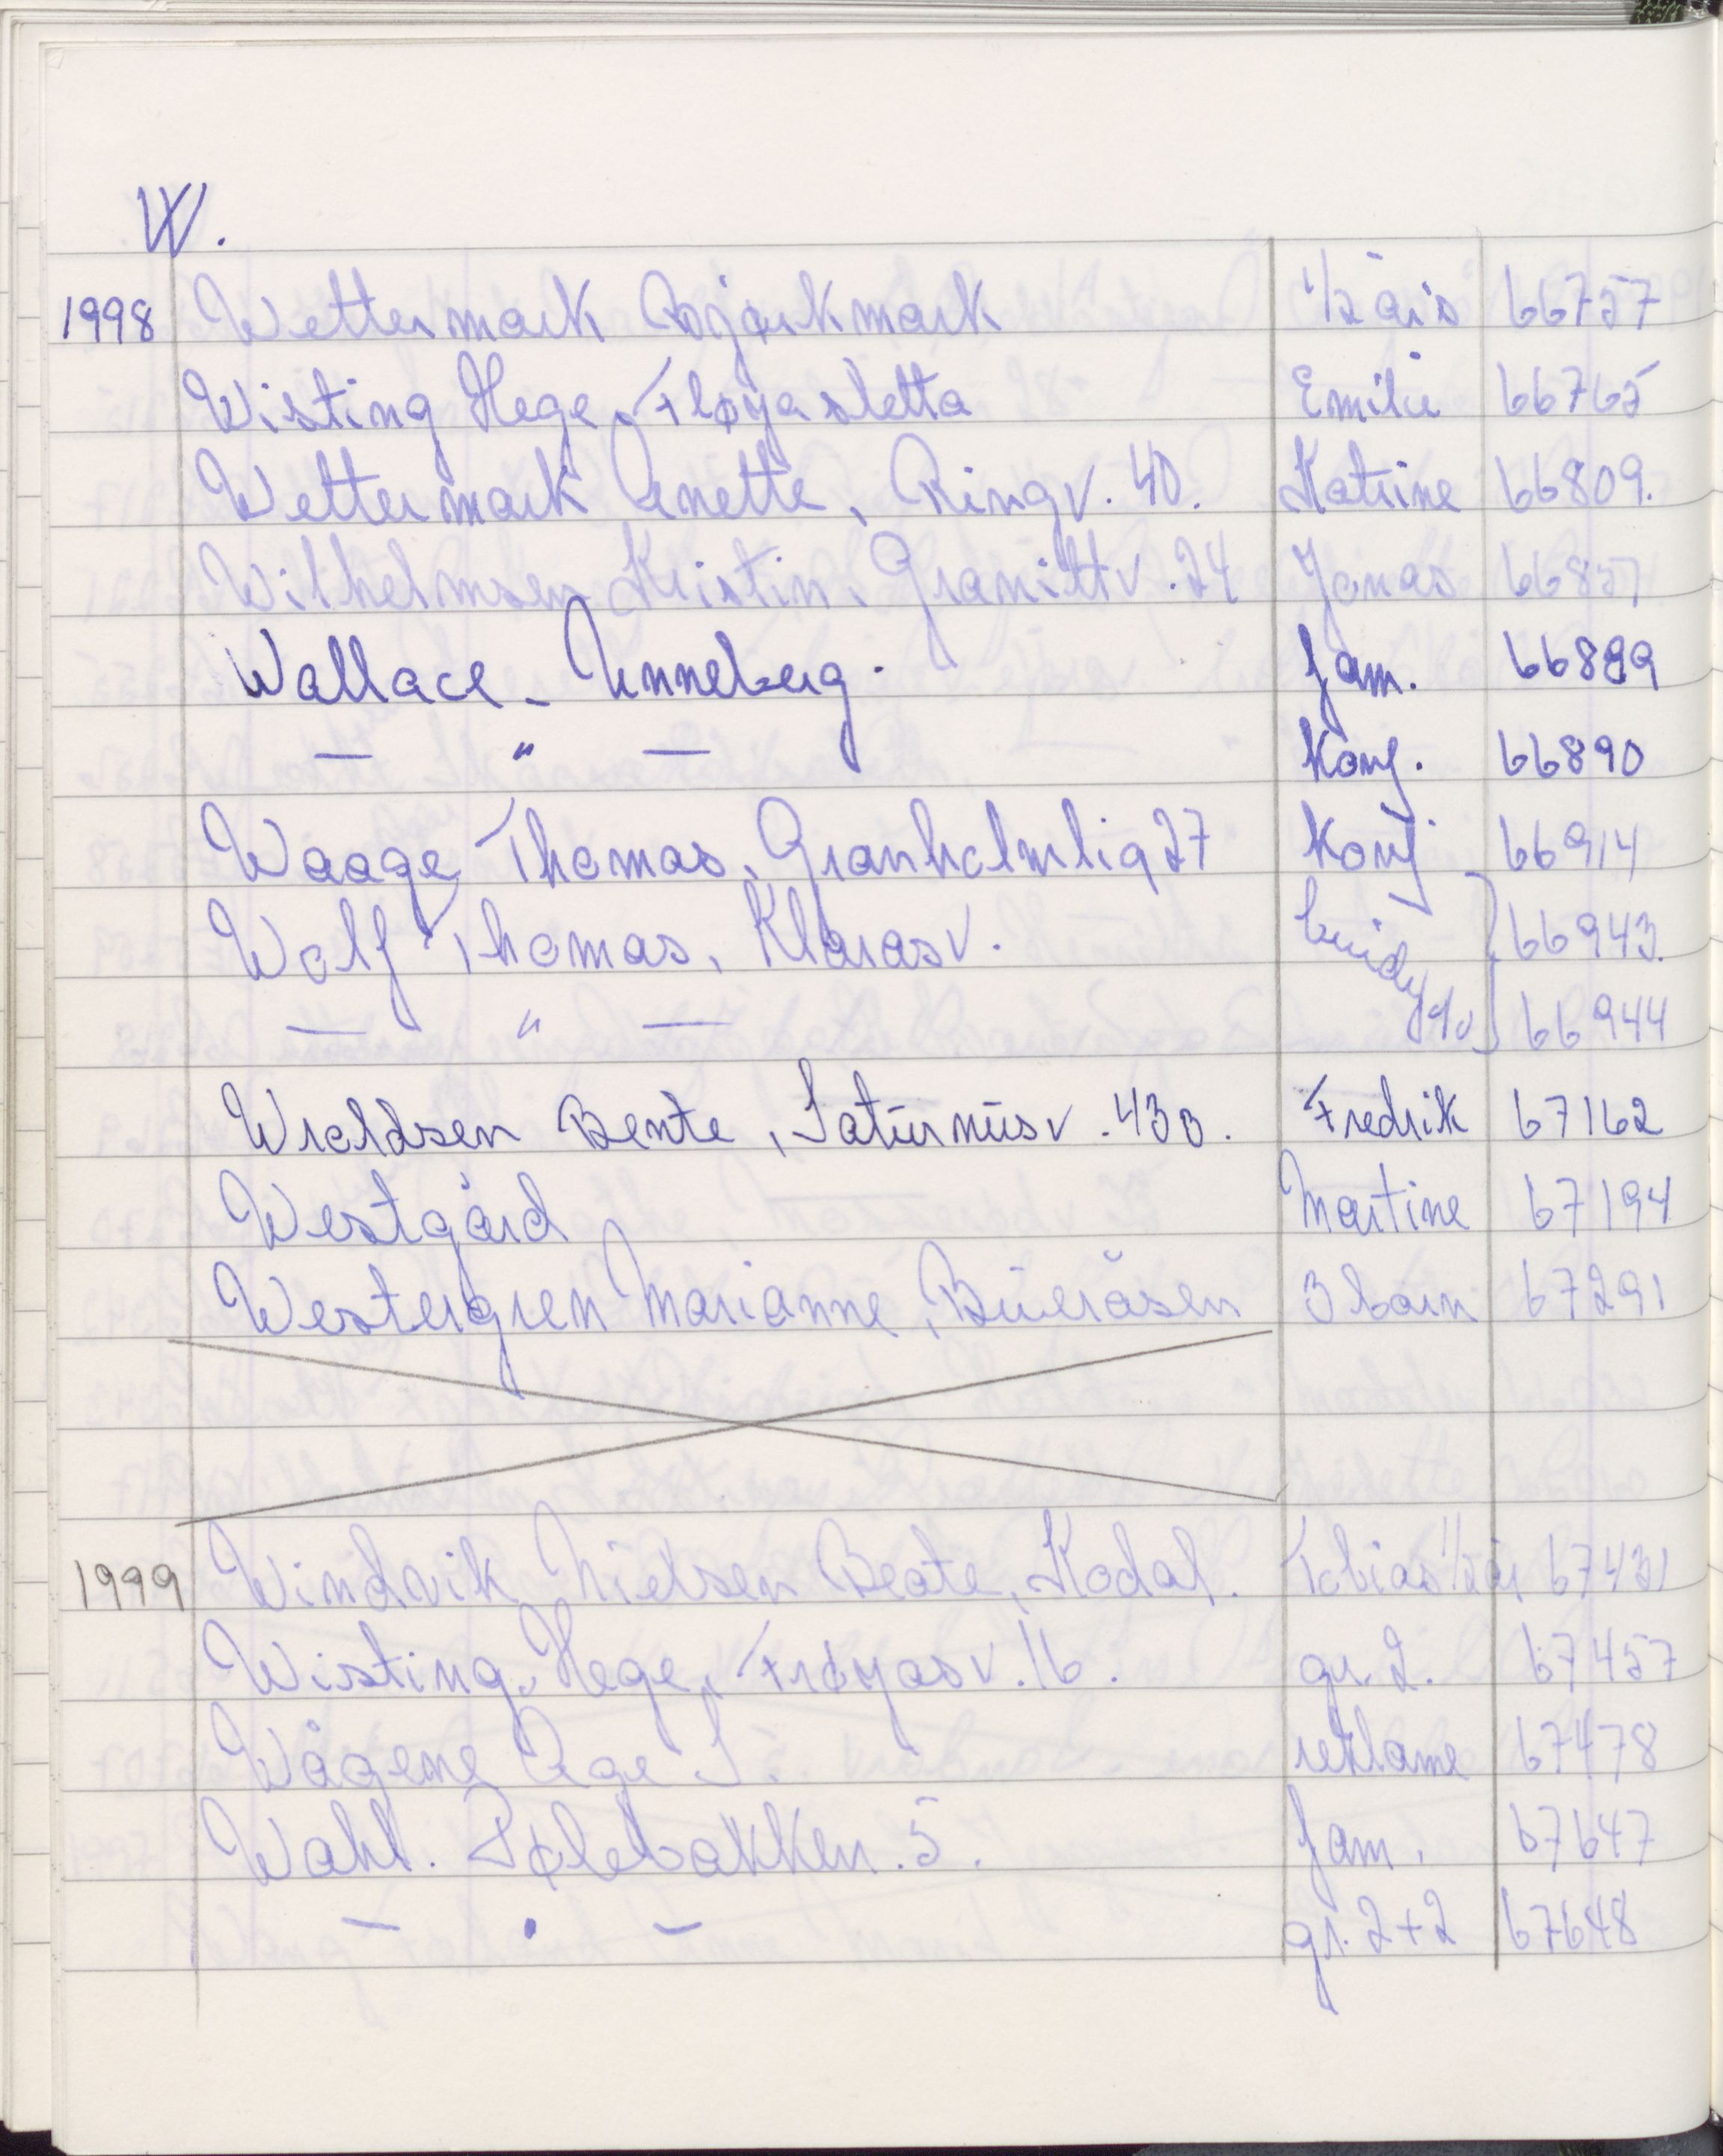 W.
1998 Wettermark Bjørkmark 1/2 års 66757
Wisting Hege, Fløyasletta Emilie 66765
Wettermark Anette, Ringv. 40. Katrine 66809.
Wilhelmsen Kristin, Granittv. 24 Jonas 66857
Wallace - Unneberg. fam. 66889
— " — Konf. 66890
Waage Thomas, Granholmlia 27 Konf 66914
Wolf Thomas, Klarasv. 66943.
— " — 66944
Wroldsen Bente, Saturnusv. 43B. Fredrik 67162
Westgård Martine 67194
Westergren Marianne, Bueråsen 3 barn 67291
1999 Windvik Nielsen Beate, Kodal. Tobias 1/2 år 67431
Wisting, Hege, Frøyasv. 16. gr. 2. 67457
Wågene Åge S. reklame 67478
Wahl. Pølebakken. 5. fam. 67647
— " — gr. 2+2 67648